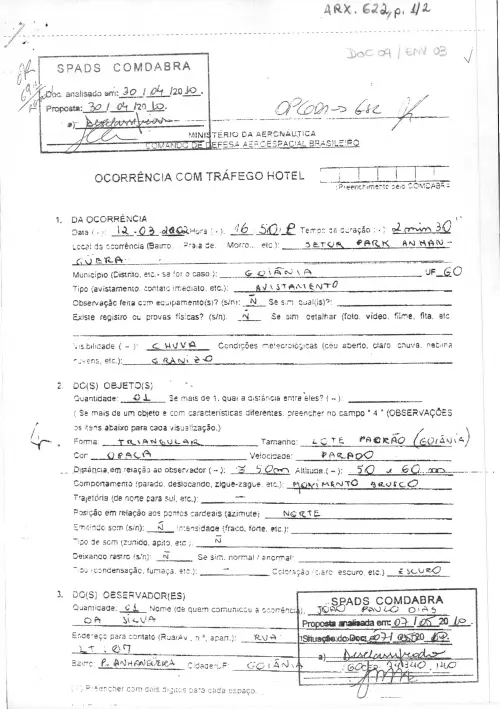 ARX. 622, p. 1/2
DOC 09 / ENV 03
SPADS COMDABRA
Doc analisado em: 30 / 04 / 20 10.
Proposta: 30 / 04 / 20 10.
a)
MINISTÉRIO DA AERONÁUTICA
COMANDO DE DEFESA AEROESPACIAL BRASILEIRO
OCORRÊNCIA COM TRÁFEGO HOTEL
(Preenchimento pelo COMDABRA
1. DA OCORRÊNCIA
Data ( - ): 12-03-2002 Hora ( - ): 16 50 P Tempo de duração ( - ) 2 min 30
Local da ocorrência (Bairro, Praia de, Morro, etc.): SETOR PARK ANHAN-
GUERA
Município (Distrito, etc.- se for o caso ): GOIÂNIA UF GO
Tipo (avistamento, contato imediato, etc.): AVISTAMENTO
Observação feita com equipamento(s)? (s/n): N Se sim, qual(is)?:
Existe registro ou provas físicas? (s/n): N Se sim detalhar (foto, vídeo, filme, fita, etc
Visibilidade ( - ): CHUVA Condições meteorológicas (céu aberto, claro, chuva, neblina
nuvens, etc.): GRANIZO
2. DO(S) OBJETO(S)
Quantidade: 01 Se mais de 1, qual a distância entre eles? ( - ):
( Se mais de um objeto e com características diferentes, preencher no campo " 4 " (OBSERVAÇÕES
os itens abaixo para cada visualização.)
Forma: TRIANGULAR Tamanho: LOTE PADRÃO (GOIÂNIA)
Cor: OPACA Velocidade: PARADO
Distância em relação ao observador ( - ): ≅ 50m Altitude ( - ): 50 a 60 m
Comportamento (parado, deslocando, zigue-zague, etc.): MOVIMENTO BRUSCO
Trajetória (de norte para sul, etc.): -
Posição em relação aos pontos cardeais (azimute) NORTE
Emitindo som (s/n): N Intensidade (fraco, forte, etc.):
Tipo de som (zunido, apito, etc.): N
Deixando rastro (s/n): N Se sim, normal / anormal:
Tipo (condensação, fumaça, etc.): - Coloração (claro, escuro, etc.) ESCURO
3. DO(S) OBSERVADOR(ES)
Quantidade: 01 Nome (de quem comunicou a ocorrência): JOÃO PAULO DIAS
DA SILVA
Endereço para contato (Rua/Av., n.º, apart.): RUA
LT: 07
Bairro: P. ANHANGUERA Cidade-UF: GOIÂNIA
SPADS COMDABRA
Proposta analisada em: 07 / 05 20 10.
Situação do Doc: 07 / 05 20 10.
a) Desclassificado
( - ) Preencher com dois dígitos para cada espaço.